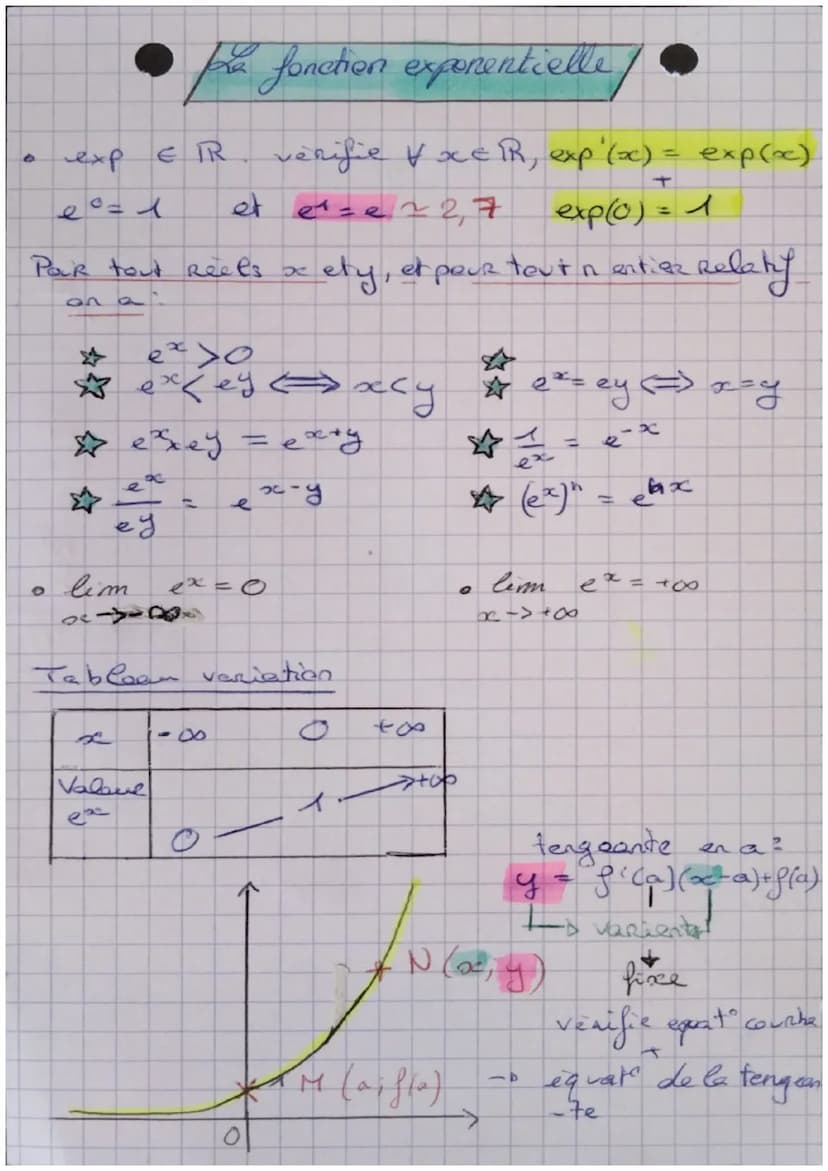 La fonction exponentielle
• exp ∈ ℝ. vérifie ∀ x ∈ ℝ, exp'(x) = exp(x)
+
e⁰ = 1 et e¹ = e ≃ 2,7 exp(0) = 1
Pour tout réels x et y, et pour tout n entier relatif
on a :
☆ eˣ > 0 ☆
☆ eˣ < eʸ ⟺ x < y ☆ eˣ = eʸ ⟺ x = y
☆ eˣ × eʸ = eˣ⁺ʸ ☆ 1/eˣ = e⁻ˣ
☆ eˣ/eʸ = eˣ⁻ʸ ☆ (eˣ)ⁿ = eⁿˣ
• lim eˣ = 0 • lim eˣ = +∞
x → -∞ x → +∞
Tableau variation
x -∞ 0 +∞
Valeur eˣ 0 1 +∞
tengeante en a :
y = f'(a)(x-a)+f(a)
varient
N (x, y) fixe
vérifie equat° courbe
+
M (a; f(a)) → équat° de la tengean
-te
0